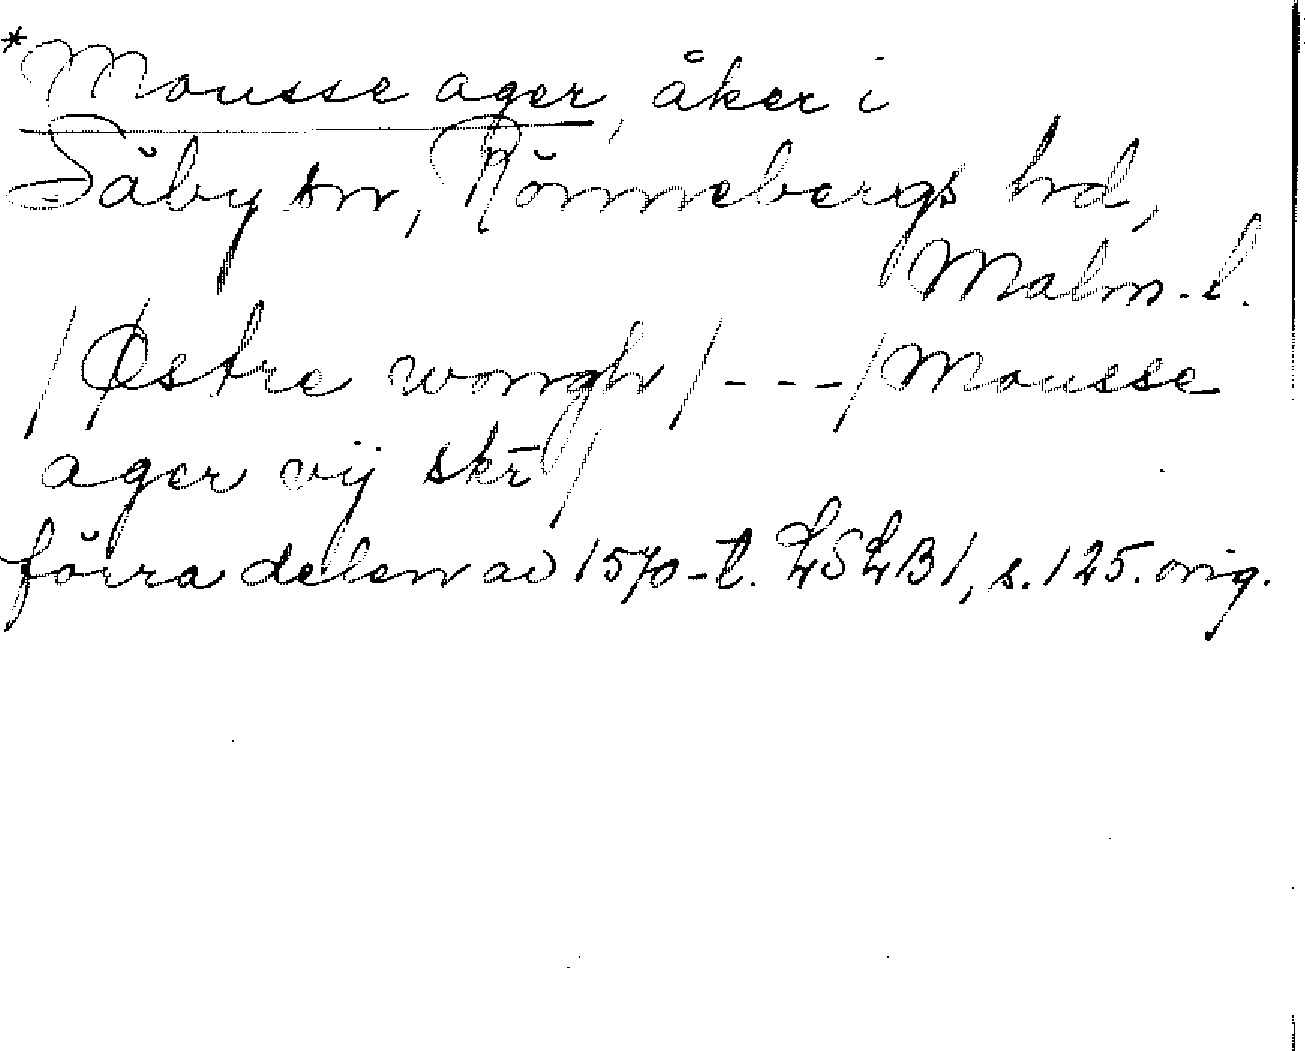 *Mousse ager, åker i
Säby sn, Rönnebergs hd,
Malm. l.
/Østre wongh/---/Mousse
ager vij skr̄/
förra delen av 1570-t. LSLB1, s. 125. orig.